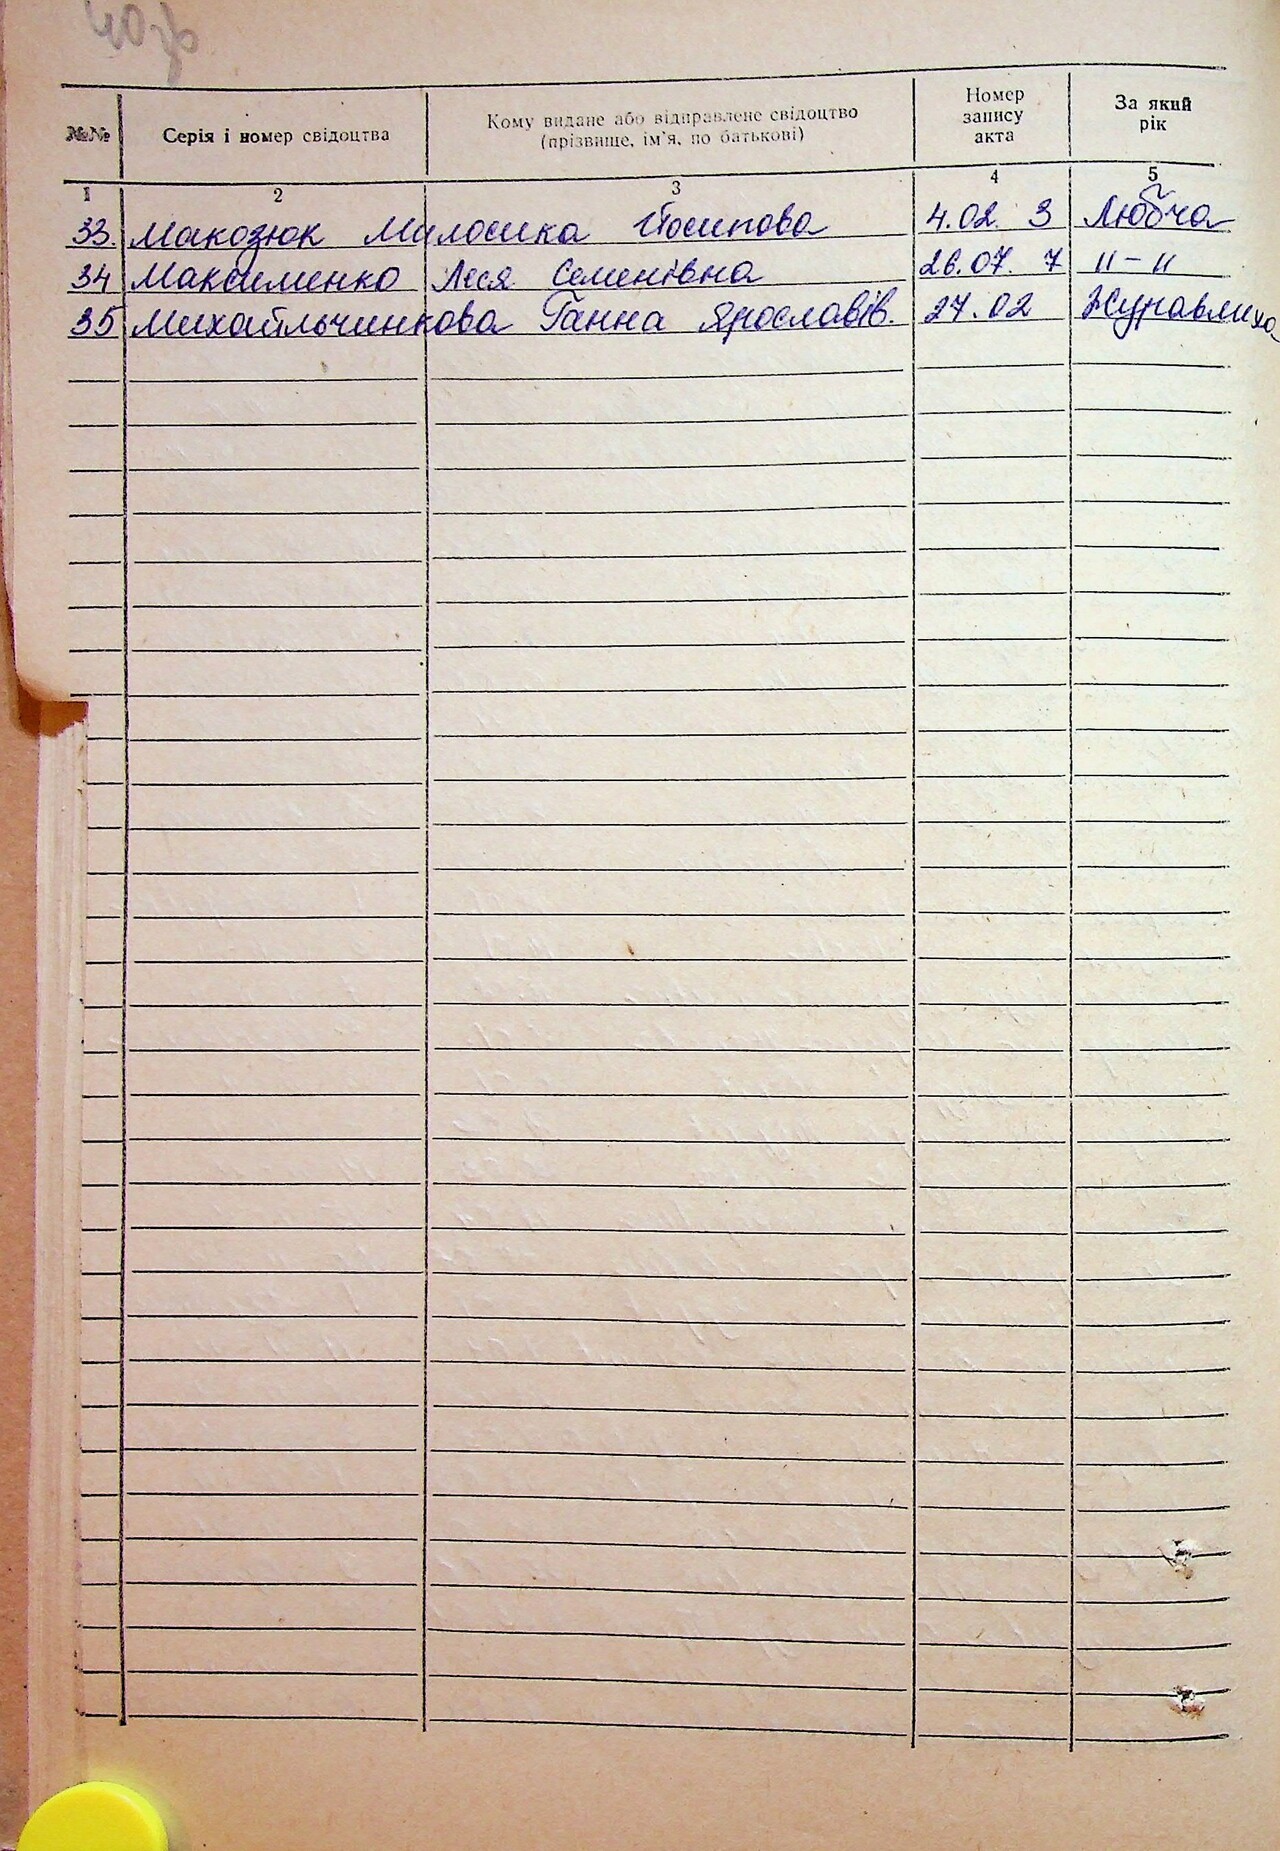 №№ Серія і номер свідоцтва Кому видане або відправлене свідоцтво (прізвище, ім'я, по батькові) Номер запису акта За який рік
1 2 3 4 5
33. Макозюк Милосика Йосипова 4.02. 3 Любча
34 Максименко Леся Семенівна 26.07. 7 11-11
35 Михайльчинкова Ганна Ярославів. 27.02 Журавлиха